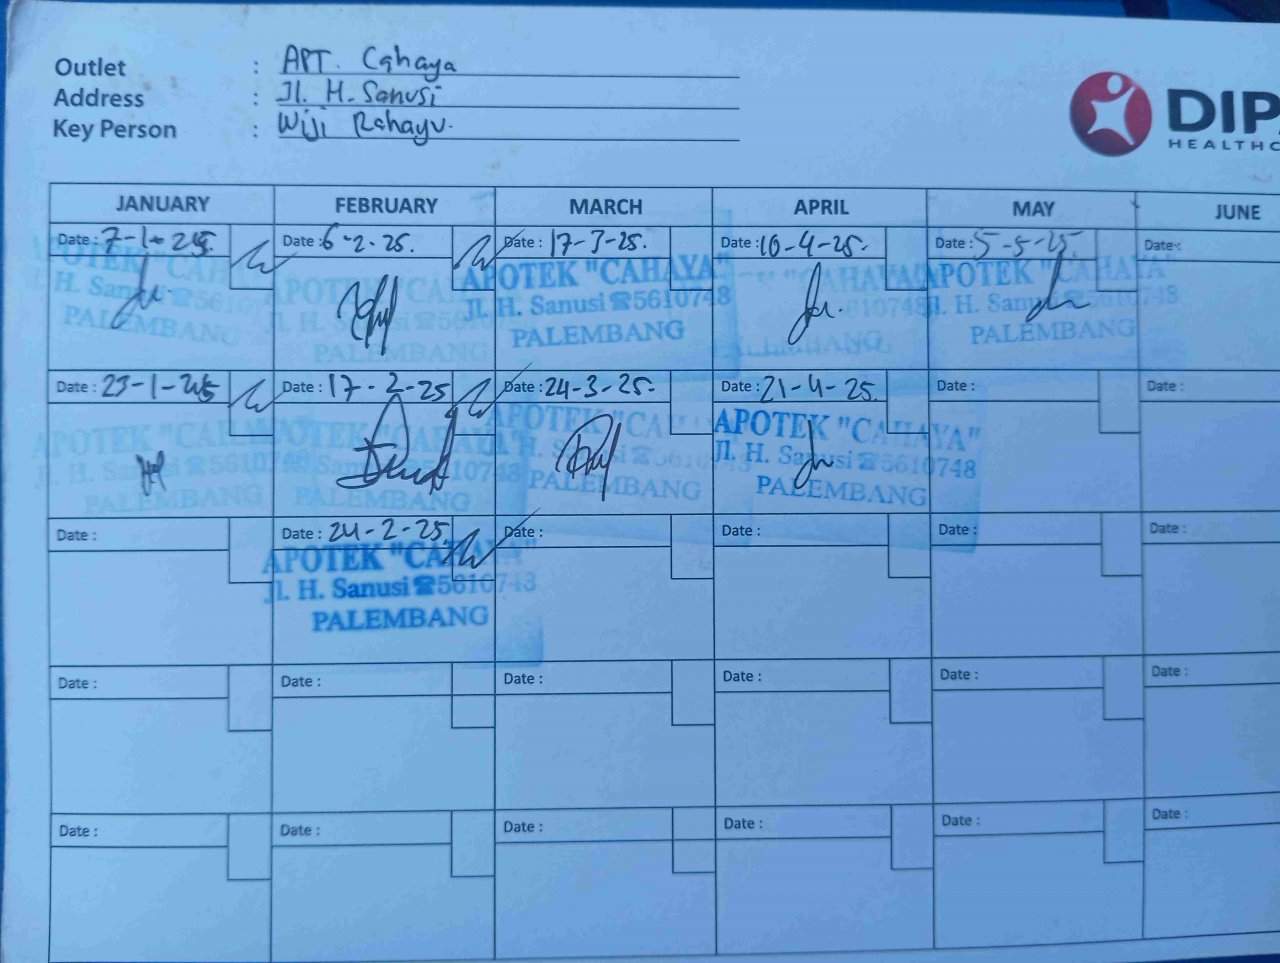 Outlet : APT. Cahaya
Address : Jl. H. Sanusi
Key Person : Wiji Rahayu.
DIP
HEALTHC
JANUARY FEBRUARY MARCH APRIL MAY JUNE
Date : 7-1-25. Date : 6-2-25. Date : 17-3-25. Date : 10-4-25. Date : 5-5-25. Date :
APOTEK "CA APOTEK "CA APOTEK "CAHAYA" "CAHAYA" APOTEK "CAHAYA"
H. Sanusi ☎5610 Jl. H. Sanusi ☎5610 Jl. H. Sanusi ☎5610748 610748 Jl. H. Sanusi ☎5610748
PALEMBANG PALEMBANG PALEMBANG PALEMBANG PALEMBANG
Date : 23-1-25 Date : 17-2-25 Date : 24-3-25. Date : 21-4-25. Date : Date :
APOTEK "CAHAYA" APOTEK "CAHAYA" APOTEK "CAHAYA" APOTEK "CAHAYA"
Jl. H. Sanusi ☎5610748 Sanusi ☎5610748 H. Sanusi ☎5610 Jl. H. Sanusi ☎5610748
PALEMBANG PALEMBANG PALEMBANG PALEMBANG
Date : Date : 24-2-25. Date : Date : Date : Date :
APOTEK "CAHAYA"
Jl. H. Sanusi ☎5610748
PALEMBANG
Date : Date : Date : Date : Date : Date :
Date : Date : Date : Date : Date : Date :